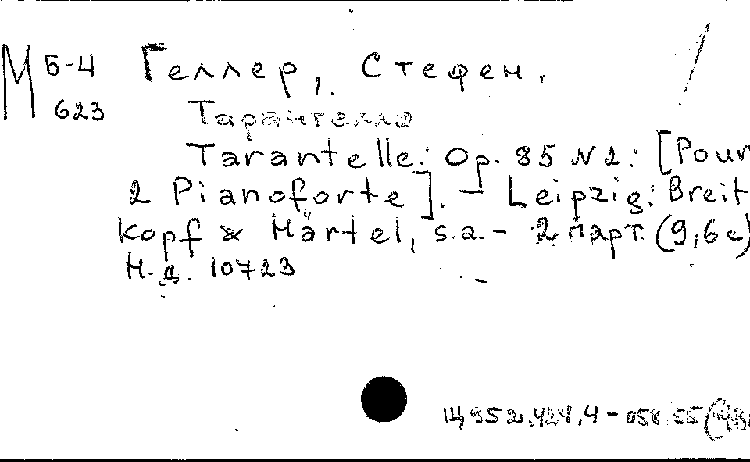 М 5-4 Геллер, Стефен.
623 Тарантелла
Tarantelle: Op. 85 N 2: [Pour
2 Pianoforte]. - Leipzig: Breit
kopf & Härtel, s.a. - 2 парт. (9,6 с)
Н.д. 10723